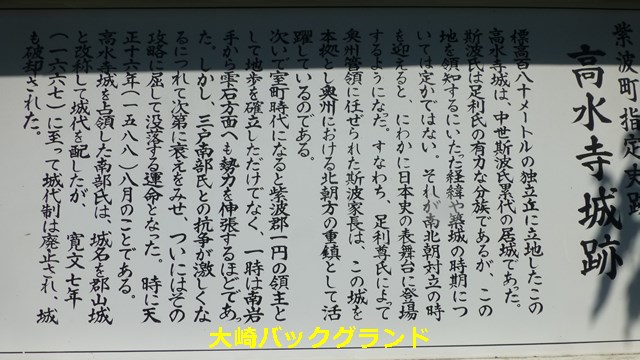 紫波町指定史跡
高水寺城跡
標高百八十メートルの独立丘に立地したこの
高水寺城は、中世斯波氏累代の居城であった。
斯波氏は足利氏の有力な分族であるが、この
地を領知するにいたった経緯や築城の時期につ
いては定かではない。それが南北朝対立の時
を迎えると、にわかに日本史の表舞台に登場
するようになった。すなわち、足利尊氏によって
奥州管領に任ぜられた斯波家長は、この城を
本拠とし奥州における北朝方の重鎮として活
躍しているのである。
次いで室町時代になると紫波郡一円の領主と
して地歩を確立しただけでなく、一時は南岩
手から雫石方面へも勢力を伸張するほどであっ
た。しかし、三戸南部氏との抗争が激しくな
るにつれて次第に衰えをみせ、ついにはその
攻略に屈して没落する運命となった。時に天
正十六年（一五八八）八月のことである。
高水寺城を占領した南部氏は、城名を郡山城
と改称して城代を配したが、寛文七年
（一六六七）に至って城代制は廃止され、城
も破却された。
大崎バックグランド